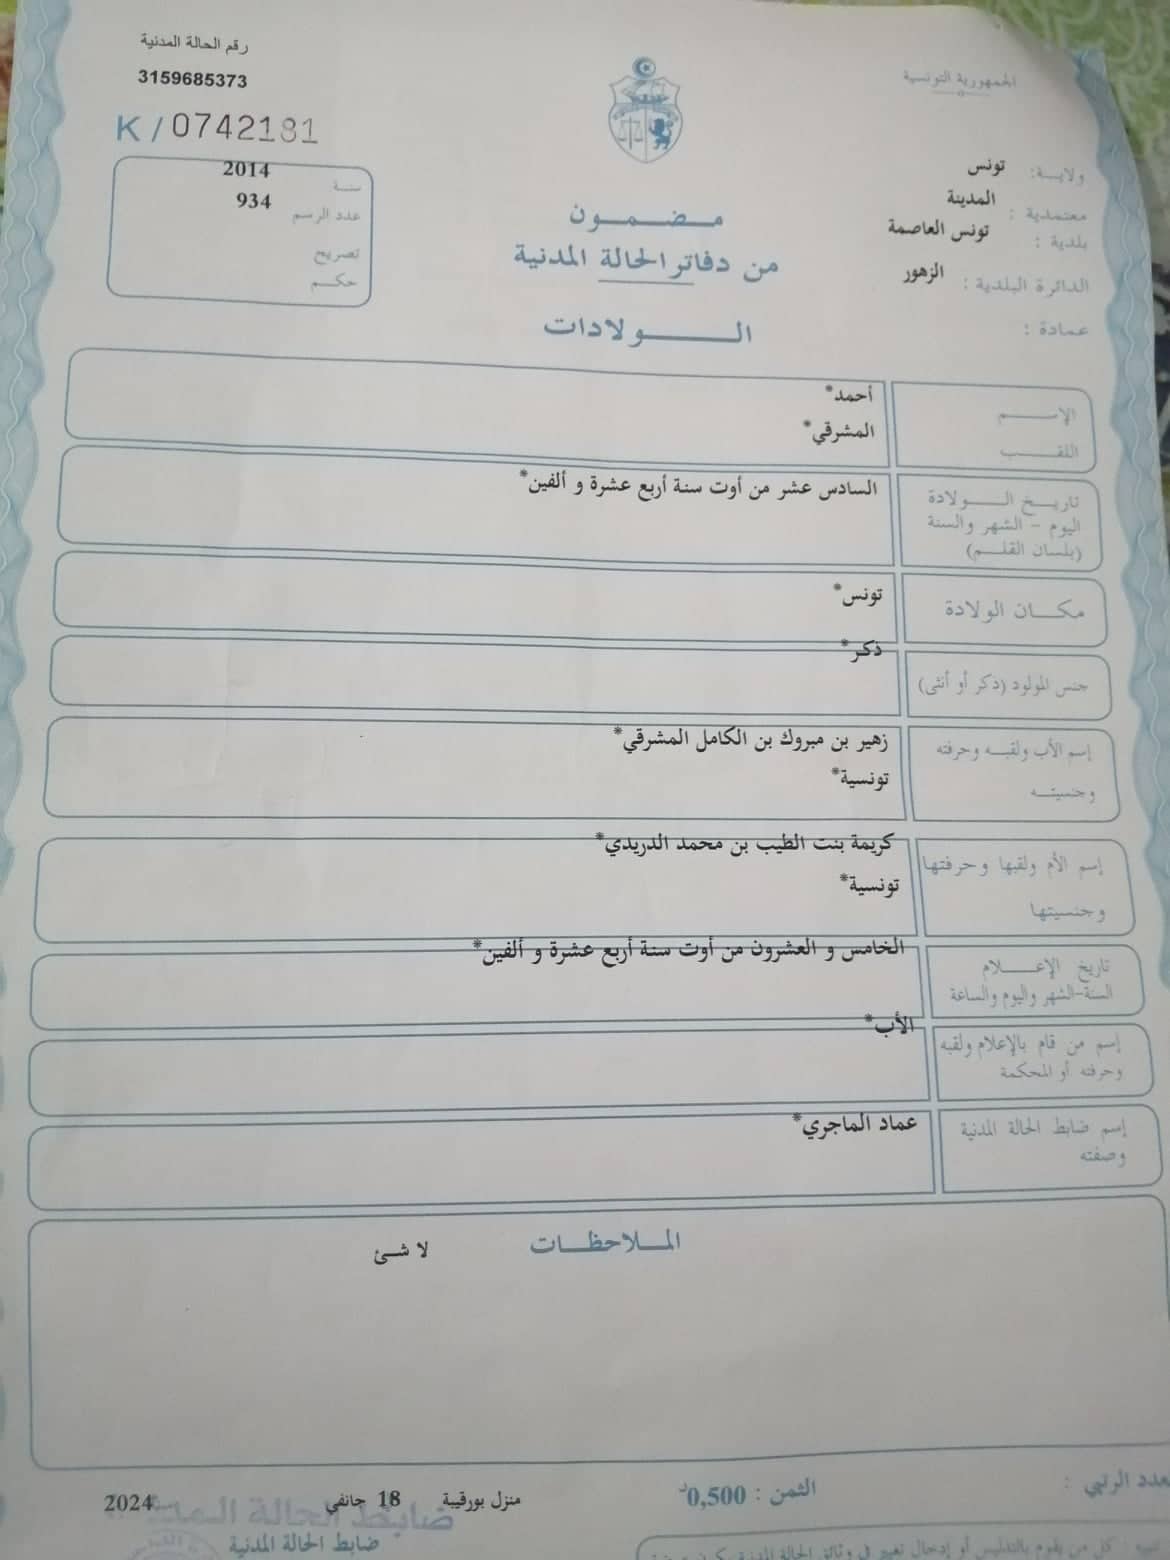 رقم الحالة المدنية
3159685373
K / 0742181
الجمهورية التونسية
ولاية: تونس
معتمدية : المدينة
بلدية : تونس العاصمة
الدائرة البلدية : الزهور
عمادة :
سنة 2014
عدد الرسم 934
تصريح
حكم
مضمون
من دفاتر الحالة المدنية
الولادات
الإسم أحمد*
اللقب المشرقي*
تاريخ الولادة
اليوم - الشهر والسنة
(بلسان القلم)
السادس عشر من أوت سنة أربع عشرة و ألفين*
مكان الولادة تونس*
جنس المولود (ذكر أو أنثى) ذكر*
إسم الأب ولقبه وحرفته
وجنسيته
زهير بن مبروك بن الكامل المشرقي*
تونسية*
إسم الأم ولقبها وحرفتها
وجنسيتها
كريمة بنت الطيب بن محمد الدريدي*
تونسية*
تاريخ الإعلام
السنة-الشهر واليوم والساعة
الخامس و العشرون من أوت سنة أربع عشرة و ألفين*
إسم من قام بالإعلام ولقبه
وحرفته أو المحكمة
الأب*
إسم ضابط الحالة المدنية
وصفته
عماد الماجري*
الملاحظات
لا شئ
عدد الرتبي :
الثمن : 0,500د
منزل بورقيبة 18 جانفي 2024
ضابط الحالة المدنية
ضابط الحالة المدنية
تنبيه : كل من يقوم بالتدليس أو إدخال تغيير في وثائق الحالة المدنية